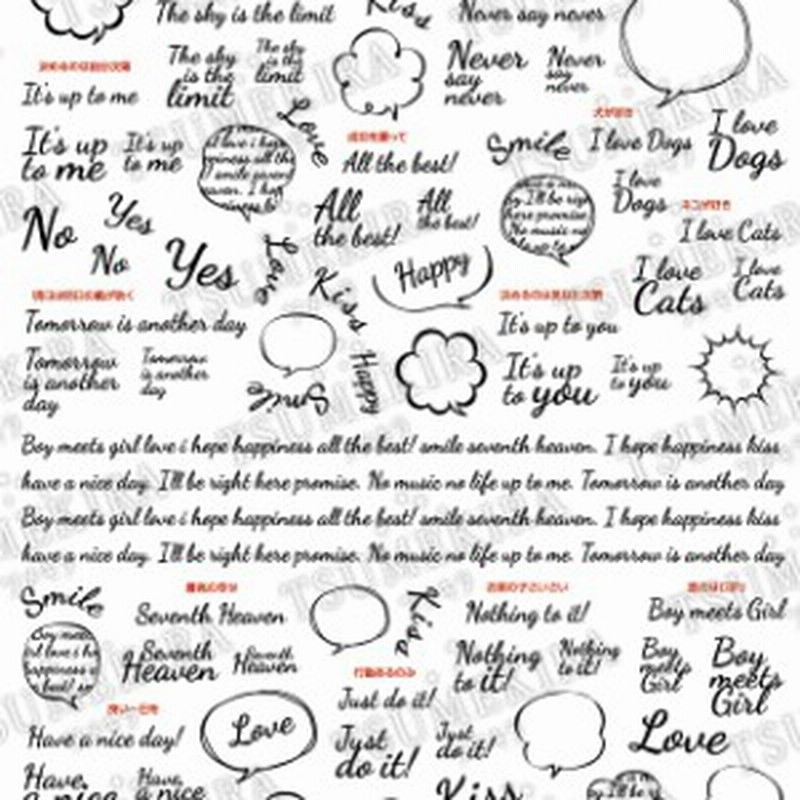 The sky is the limit
Kiss
Never say never
The sky
is the
limit
The sky
is the
limit
Never
say
never
Never
say
never
It's up to me
Love
I love
Dogs
I love Dogs
Smile
It's up
to me
It's up
to me
All the best!
I love
Dogs
No
Yes
No
Yes
All
the best!
All
the best!
I love Cats
Love
Kiss
Happy
I love
Cats
I love
Cats
Tomorrow is another day
It's up to you
Tomorrow
is another
day
Tomorrow
is another
day
Happy
Smile
It's up
to you
It's up
to you
Boy meets girl love i hope happiness all the best! smile seventh heaven. I hope happiness kiss
have a nice day. I'll be right here promise. No music no life up to me. Tomorrow is another day
Boy meets girl love i hope happiness all the best! smile seventh heaven. I hope happiness kiss
have a nice day. I'll be right here promise. No music no life up to me. Tomorrow is another day
Smile
Seventh Heaven
Kiss
Nothing to it!
Boy meets Girl
Seventh
Heaven
Seventh
Heaven
Nothing
to it!
Nothing
to it!
Boy
meets
Girl
Boy
meets
Girl
Just do it!
Have a nice day!
Love
Just
do it!
Just
do it!
Love
Have
a nice
Have
a nice
Kiss
TSUMEKIRA